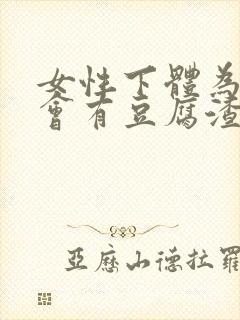 女性下體為
會有豆腐渣
亞歷山德拉羅